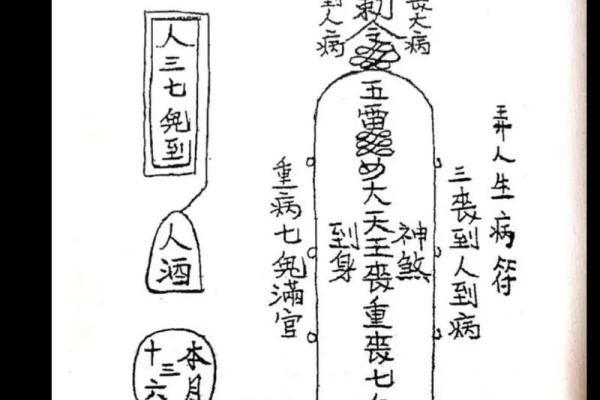 弄人生病符
三喪到人到病
大病
勅令
到人病
五雷
大天王喪重喪七
神煞
到身
重病七鬼滿官
人三七鬼到
人酒
本月
十三六